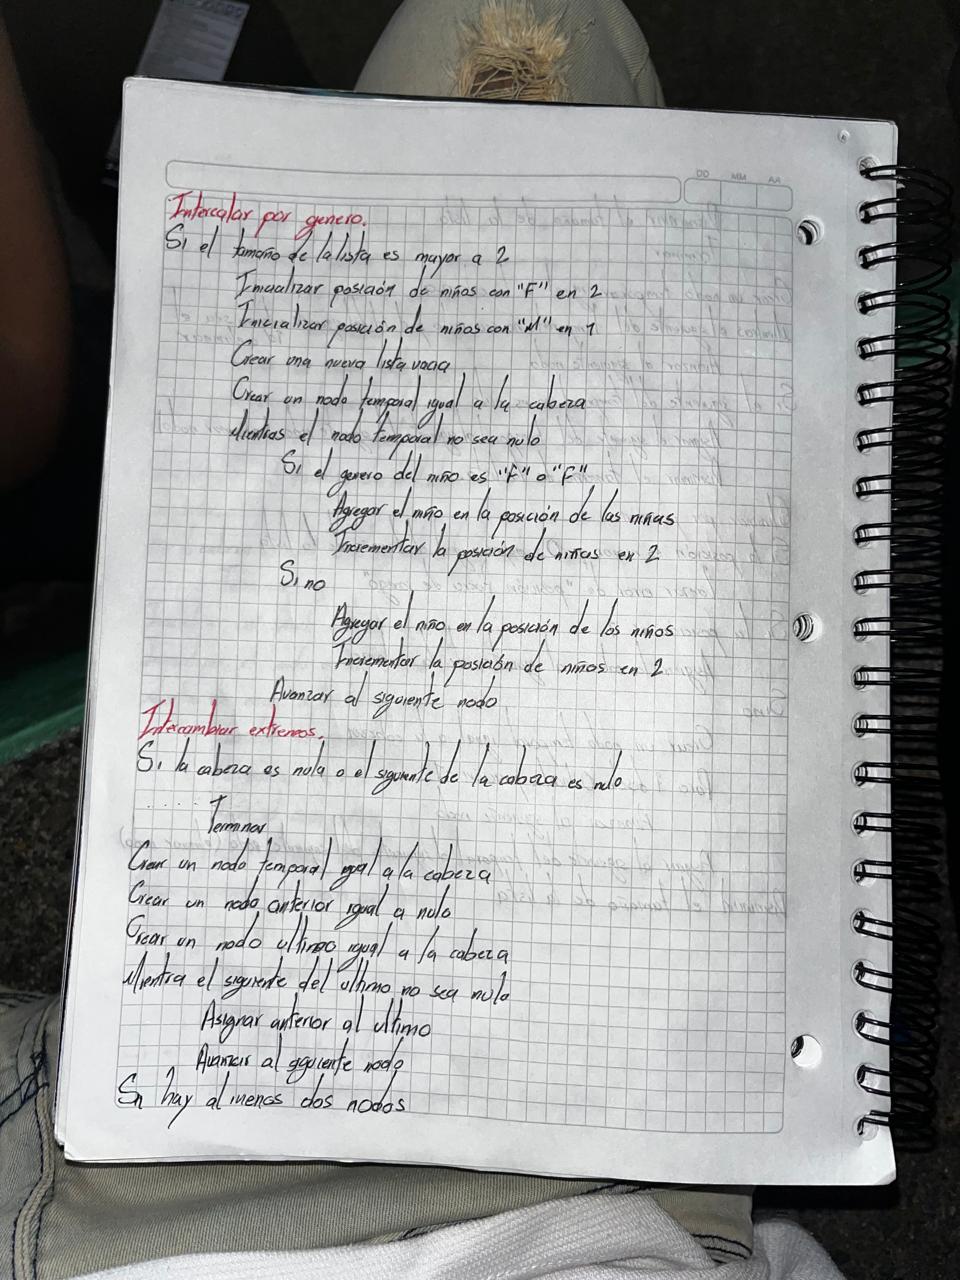 DD MM AA
Intercalar por genero.
Si el tamaño de la lista es mayor a 2
Inicializar posición de niños con "F" en 2
Inicializar posición de niños con "M" en 1
Crear una nueva lista vacia
Crear un nodo temporal igual a la cabeza
Mientras el nodo temporal no sea nulo
Si el genero del niño es "F" o "F"
Agregar el niño en la posición de las niñas
Incrementar la posición de niñas en 2
Si no
Agregar el niño en la posición de los niños
Incrementar la posición de niños en 2
Avanzar al siguiente nodo
Intercambiar extremos.
Si la cabeza es nula o el siguiente de la cabeza es nulo
Terminar
Crear un nodo temporal igual a la cabeza
Crear un nodo anterior igual a nulo
Crear un nodo ultimo igual a la cabeza
Mientra el siguiente del ultimo no sea nulo
Asignar anterior al ultimo
Avanzar al siguiente nodo
hay al menos dos nodos